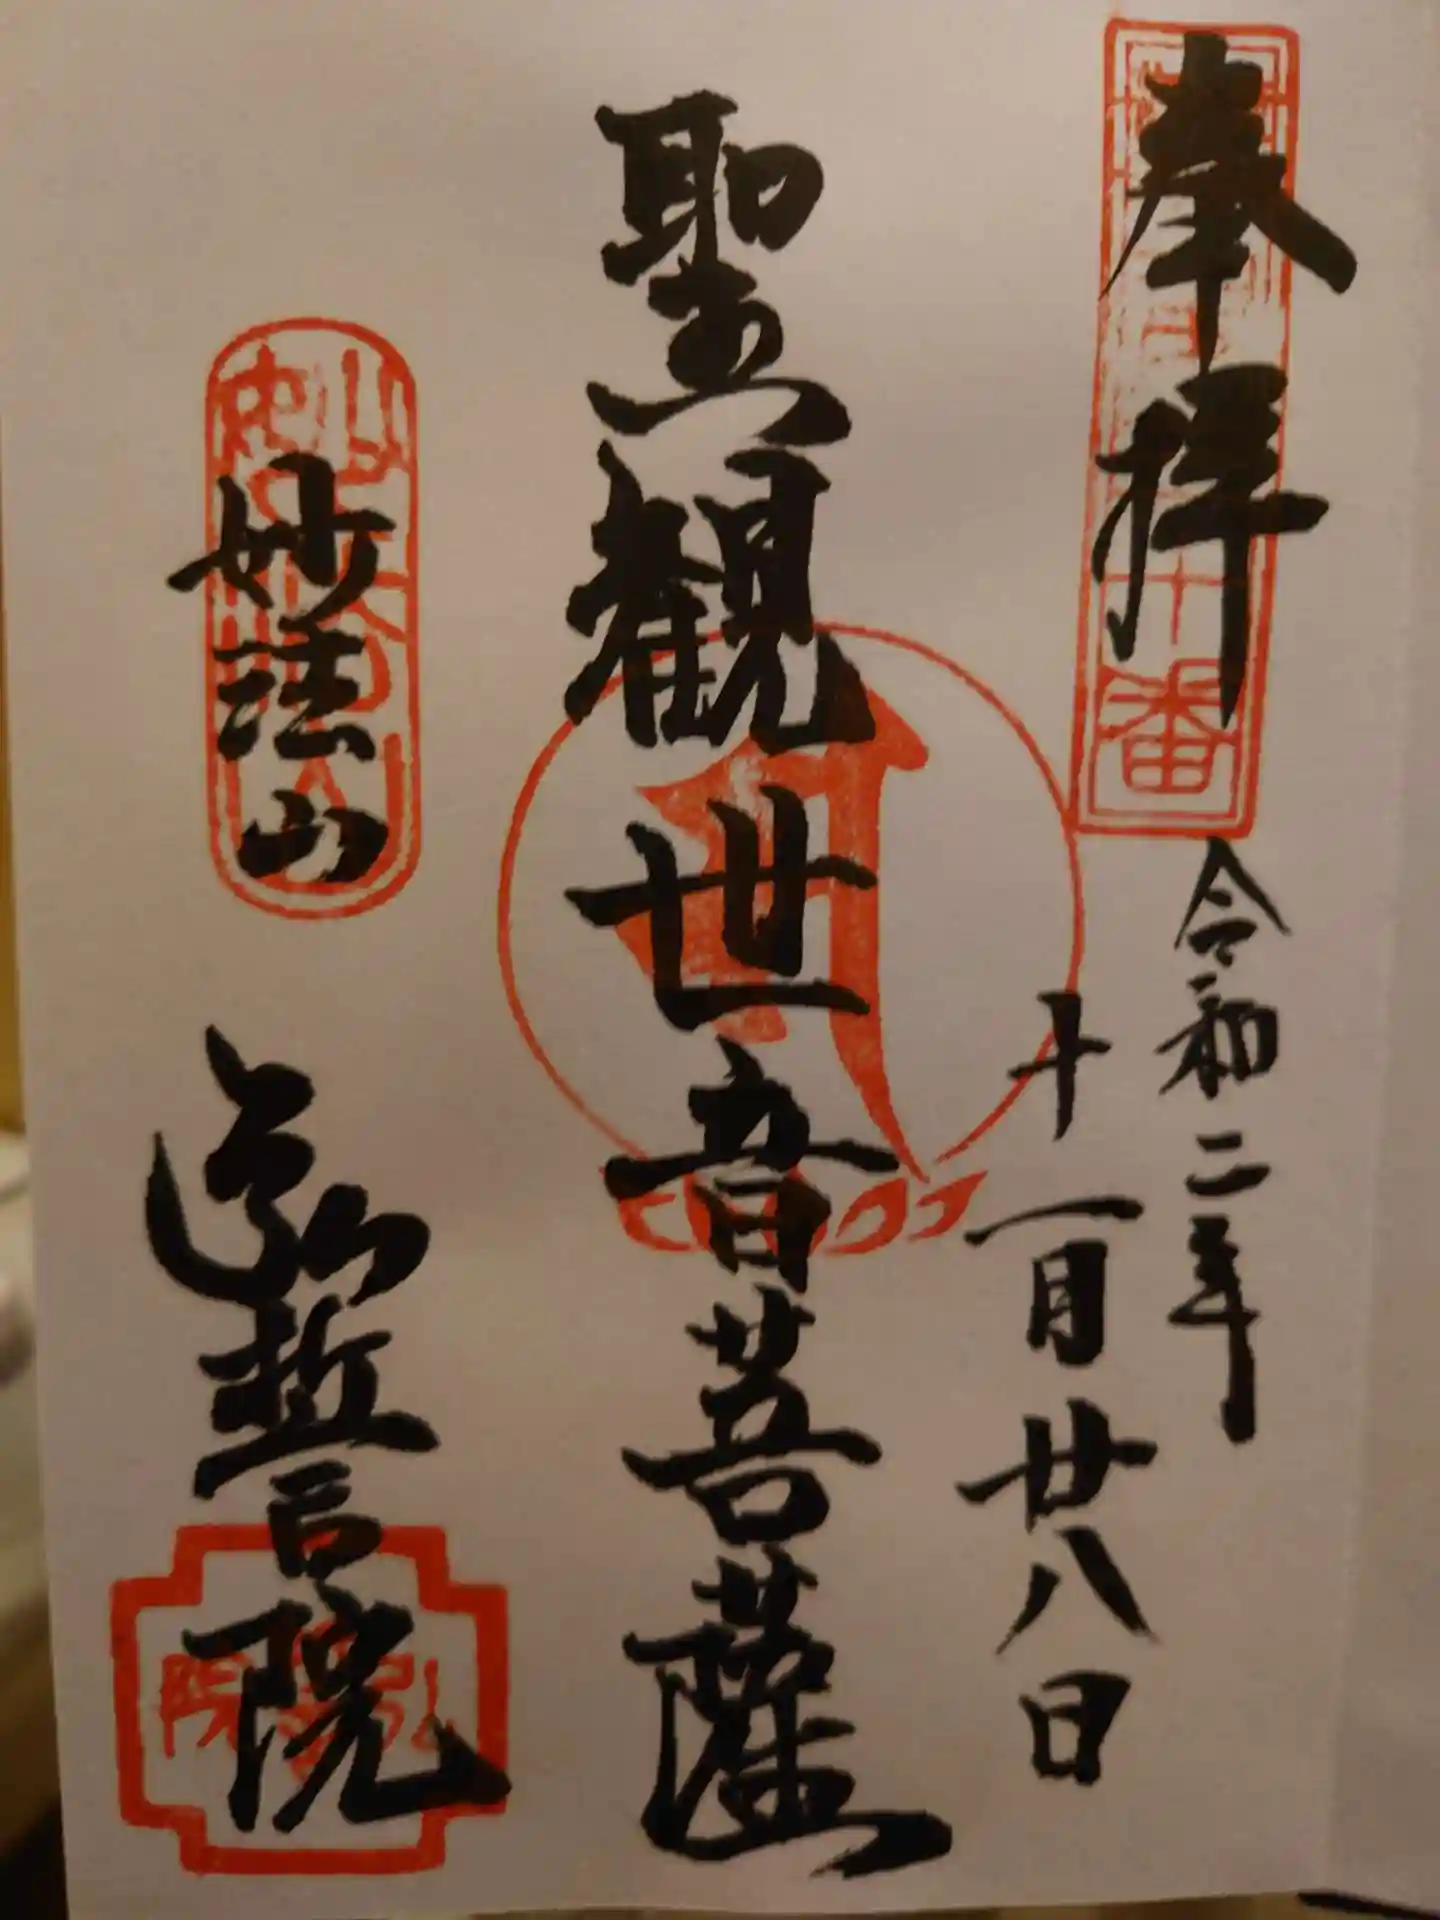 奉拝
令和二年
十一月廿八日
聖観世音菩薩
妙法山
弘誓院
番